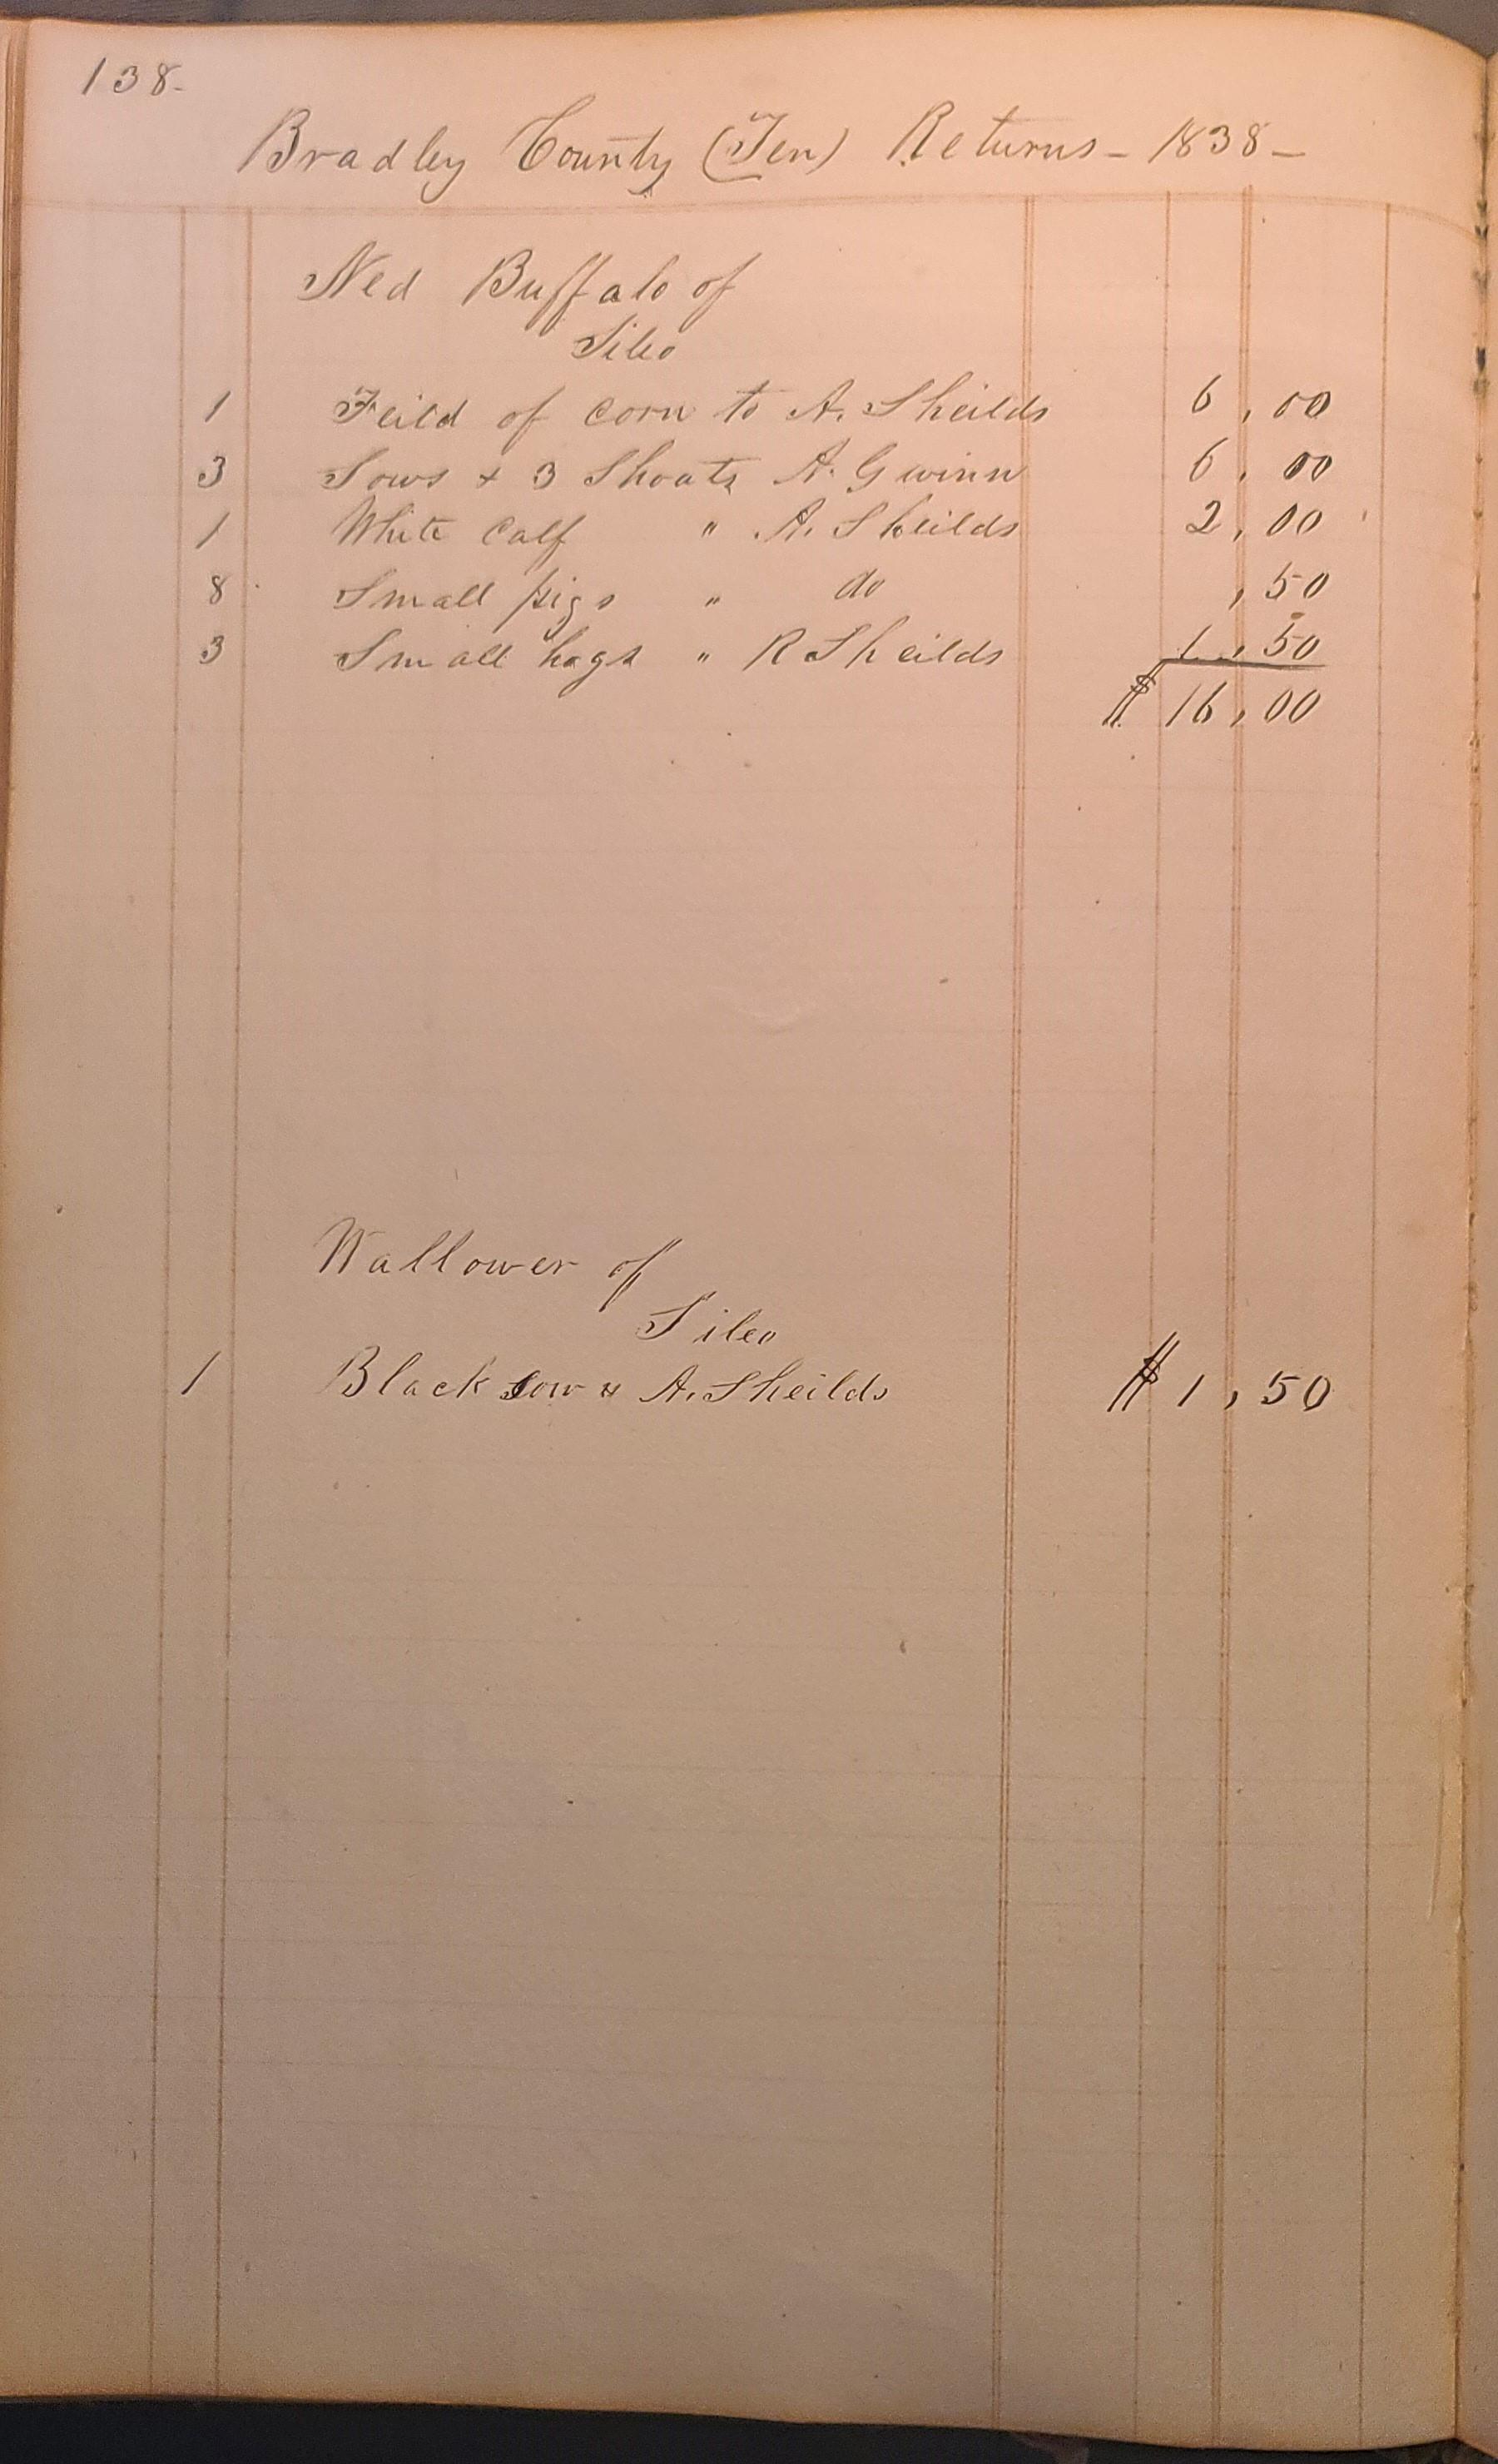 138-
Bradley County (Ten) Returns - 1838 -
Ned Buffalo of
Sileo
1 Feild of corn to A. Sheilds 6,00
3 Sows + 3 Shoats A. Gwinn 6,00
1 White Calf " A. Sheilds 2,00
8 Small pigs " do ,50
3 Small hogs " R Sheilds 1,50
$ 16,00
Wallower of
Sileo
1 Black sow " A. Sheilds $ 1,50